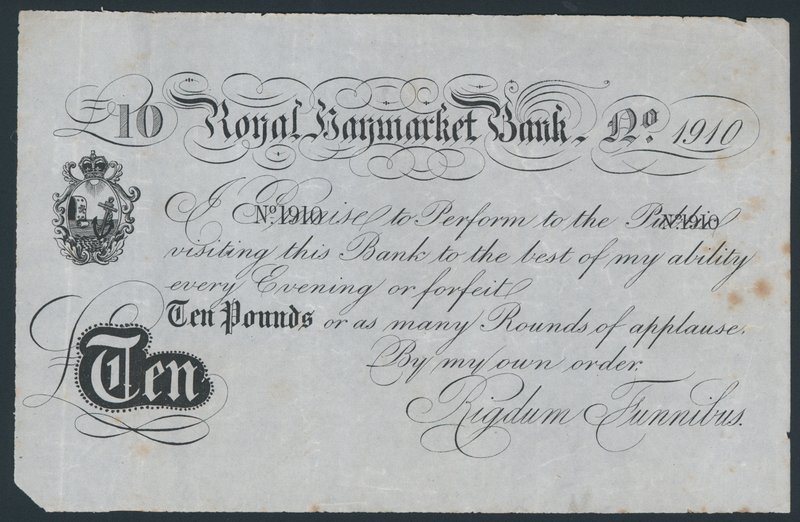 £10 Royal Haymarket Bank. No. 1910
I Promise to Perform to the Public
No. 1910 No. 1910
visiting this Bank to the best of my ability
every Evening or forfeit
Ten Pounds or as many Rounds of applause.
By my own order.
£Ten
Rigdum Funnibus.